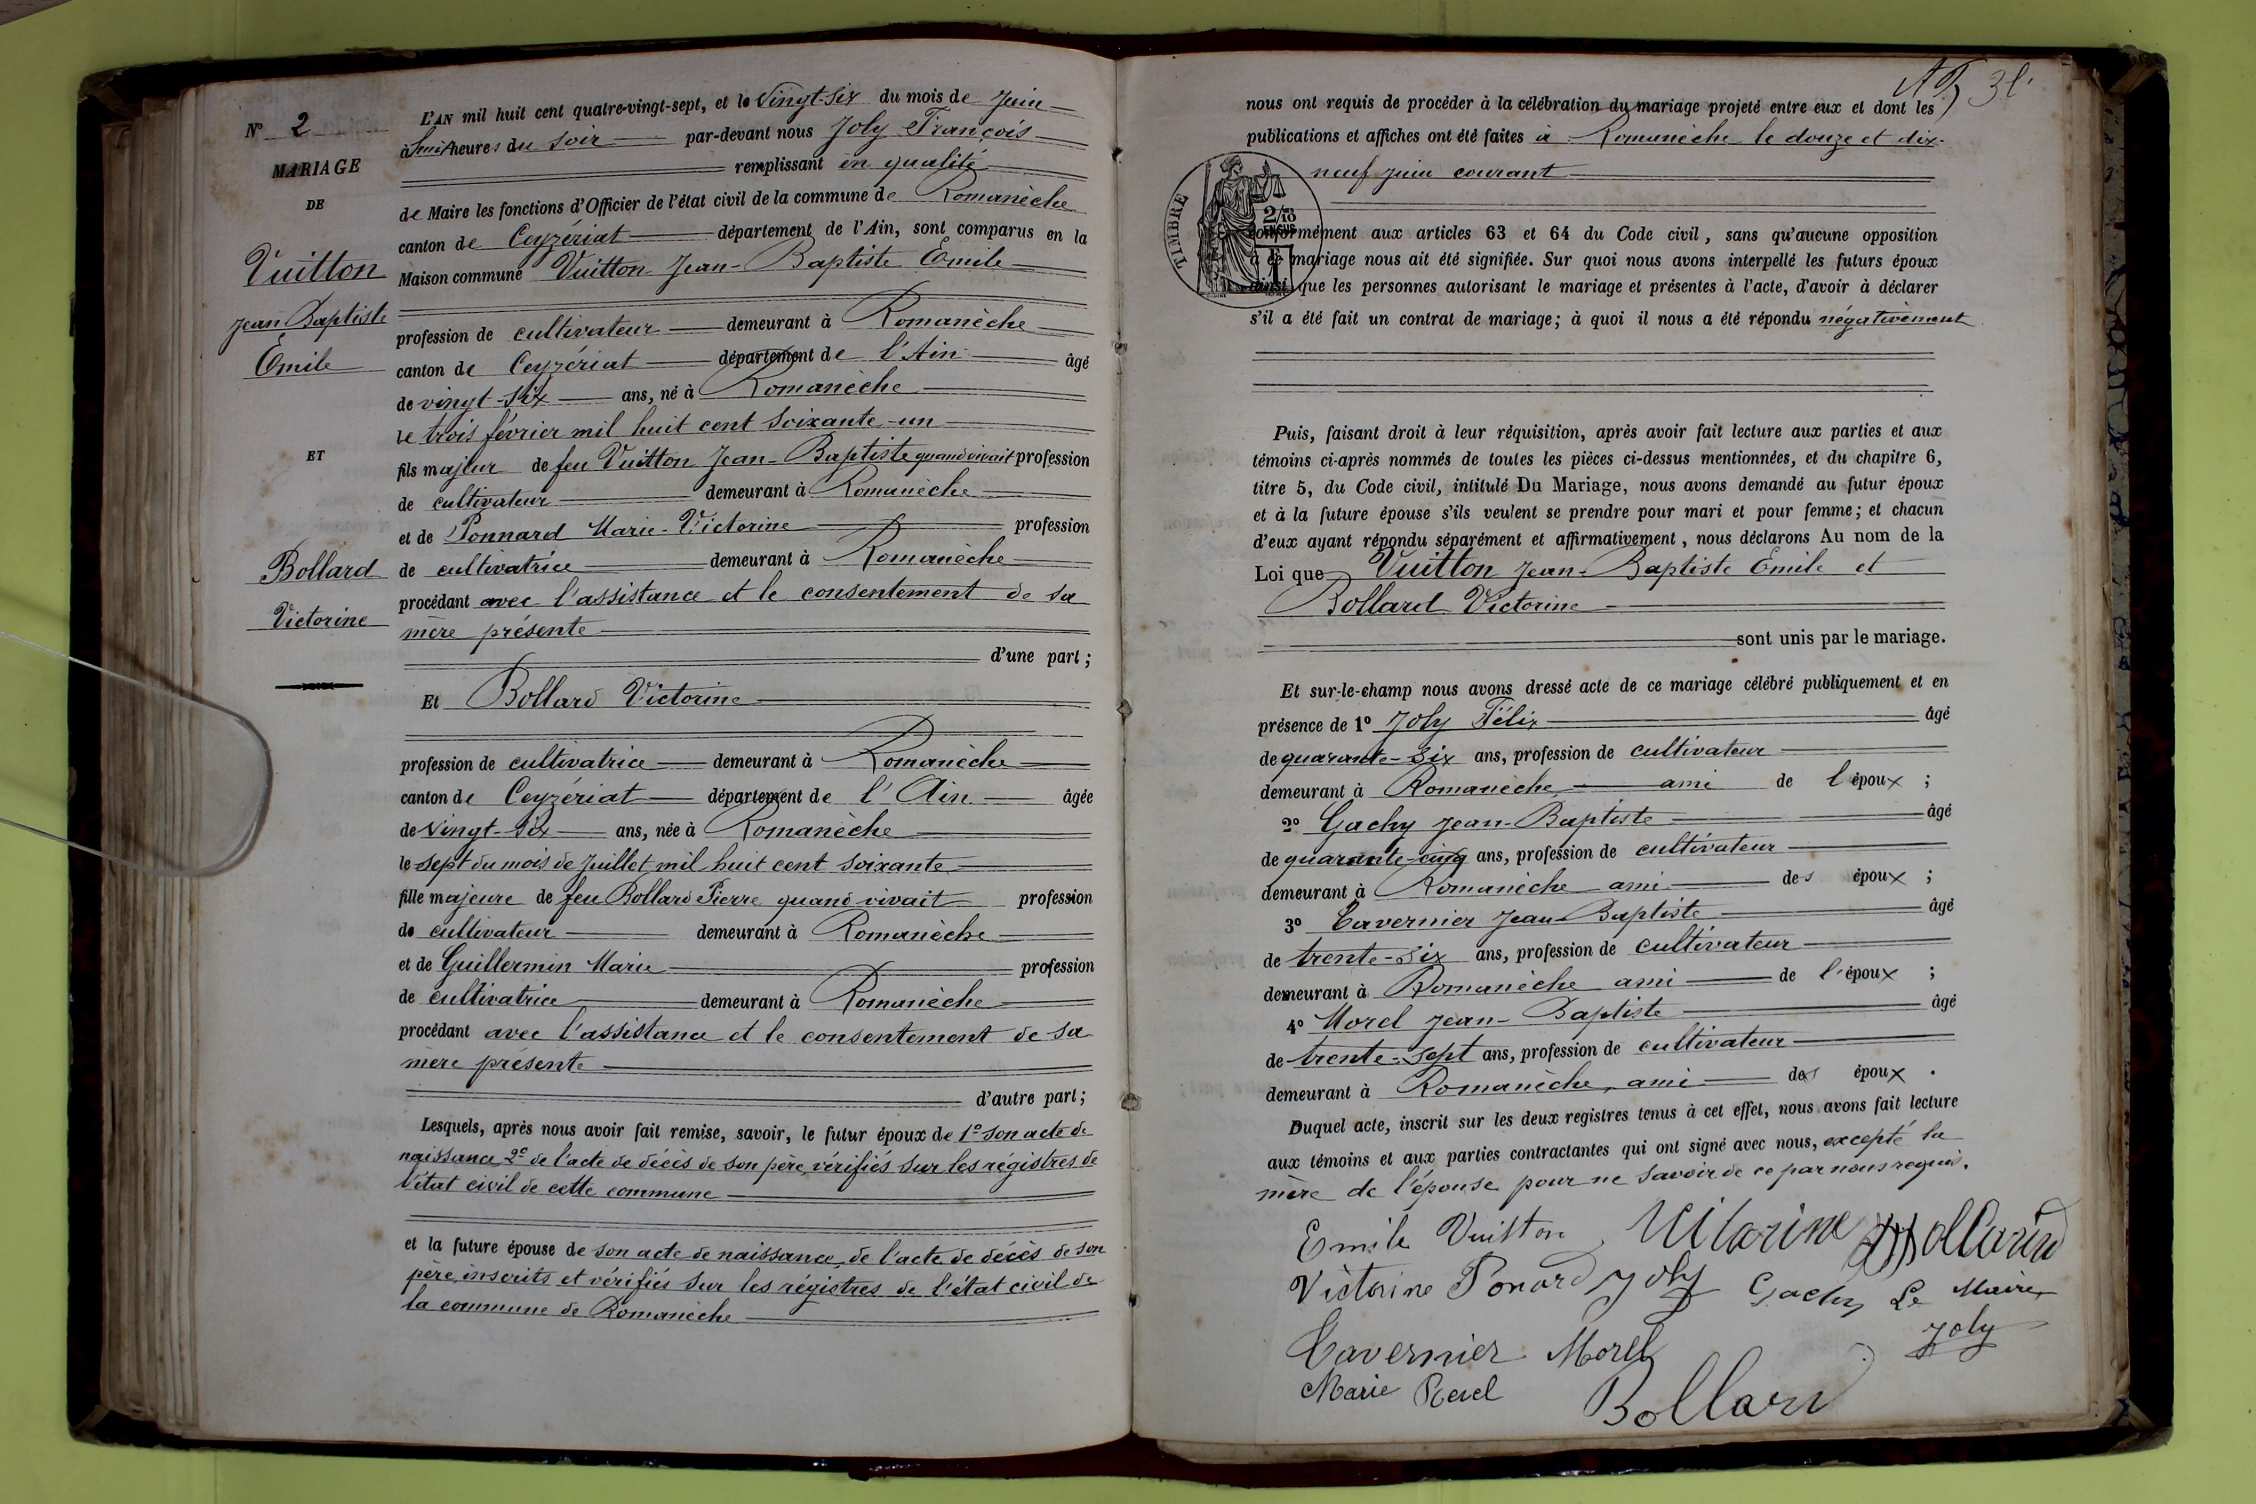 N° 2
MARIAGE
DE
Vuitton
Jean Baptiste
Emile
ET
Bollard
Victorine
L'AN mil huit cent quatre-vingt-sept, et le vingt-six du mois de Juin
à huit heures du soir par-devant nous Joly François
remplissant en qualité
de Maire les fonctions d'Officier de l'état civil de la commune de Romanèche
canton de Ceyzériat département de l'Ain, sont comparus en la
Maison commune Vuitton Jean-Baptiste Emile
profession de cultivateur demeurant à Romanèche
canton de Ceyzériat département de l'Ain âgé
de vingt-six ans, né à Romanèche
le trois février mil huit cent soixante-un
fils majeur de feu Vuitton Jean-Baptiste quand vivait profession
de cultivateur demeurant à Romanèche
et de Ponnard Marie-Victorine profession
de cultivatrice demeurant à Romanèche
procédant avec l'assistance et le consentement de sa
mère présente
d'une part ;
Et Bollard Victorine
profession de cultivatrice demeurant à Romanèche
canton de Ceyzériat département de l'Ain âgée
de vingt-six ans, née à Romanèche
le sept du mois de Juillet mil huit cent soixante
fille majeure de feu Bollard Pierre quand vivait profession
de cultivateur demeurant à Romanèche
et de Guillermin Marie profession
de cultivatrice demeurant à Romanèche
procédant avec l'assistance et le consentement de sa
mère présente
d'autre part ;
Lesquels, après nous avoir fait remise, savoir, le futur époux de 1° son acte de
naissance 2° de l'acte de décès de son père, vérifiés sur les régistres de
l'état civil de cette commune
et la future épouse de son acte de naissance, de l'acte de décès de son
père, inscrits et vérifiés sur les régistres de l'état civil de
la commune de Romanèche
nous ont requis de procéder à la célébration du mariage projeté entre eux et dont les
publications et affiches ont été faites à Romanèche le douze et dix-
neuf juin courant
TIMBRE
2/10
EN SUS
conformément aux articles 63 et 64 du Code civil, sans qu'aucune opposition
à ce mariage nous ait été signifiée. Sur quoi nous avons interpellé les futurs époux
ainsi que les personnes autorisant le mariage et présentes à l'acte, d'avoir à déclarer
s'il a été fait un contrat de mariage ; à quoi il nous a été répondu négativement
Puis, faisant droit à leur réquisition, après avoir fait lecture aux parties et aux
témoins ci-après nommés de toutes les pièces ci-dessus mentionnées, et du chapitre 6,
titre 5, du Code civil, intitulé Du Mariage, nous avons demandé au futur époux
et à la future épouse s'ils veulent se prendre pour mari et pour femme ; et chacun
d'eux ayant répondu séparément et affirmativement, nous déclarons Au nom de la
Loi que Vuitton Jean-Baptiste Emile et
Bollard Victorine
sont unis par le mariage.
Et sur-le-champ nous avons dressé acte de ce mariage célébré publiquement et en
présence de 1° Joly Félix âgé
de quarante-six ans, profession de cultivateur
demeurant à Romanèche ami de l'époux ;
2° Gachy Jean-Baptiste âgé
de quarante-cinq ans, profession de cultivateur
demeurant à Romanèche ami des époux ;
3° Tavernier Jean-Baptiste âgé
de trente-six ans, profession de cultivateur
demeurant à Romanèche ami de l'époux ;
4° Morel Jean-Baptiste âgé
de trente-sept ans, profession de cultivateur
demeurant à Romanèche, ami des époux .
Duquel acte, inscrit sur les deux registres tenus à cet effet, nous avons fait lecture
aux témoins et aux parties contractantes qui ont signé avec nous, excepté la
mère de l'épouse pour ne savoir de ce par nous requis.
Emile Vuitton Victorine Bollard
Victorine Ponard Joly Gachy Le Maire
Joly
Tavernier Morel
Marie
Bollard